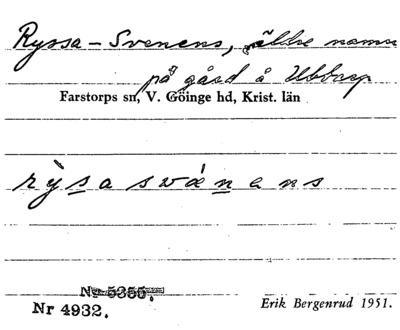 Ryssa-Svenens, äldre namn
på gård å Ubbarp
Farstorps sn, V. Göinge hd, Krist. län
rỳsa svǽnens
Nr 5255.
Nr 4932.
Erik Bergenrud 1951.